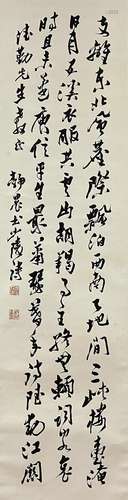 支離東北風塵際飄泊西南天地間三峽樓臺淹
日月五溪衣服共雲山胡羯事主終無賴詞客哀
時且未還庾信平生最蕭瑟暮年詩賦動江關
勤先生
靜農書少陵詩